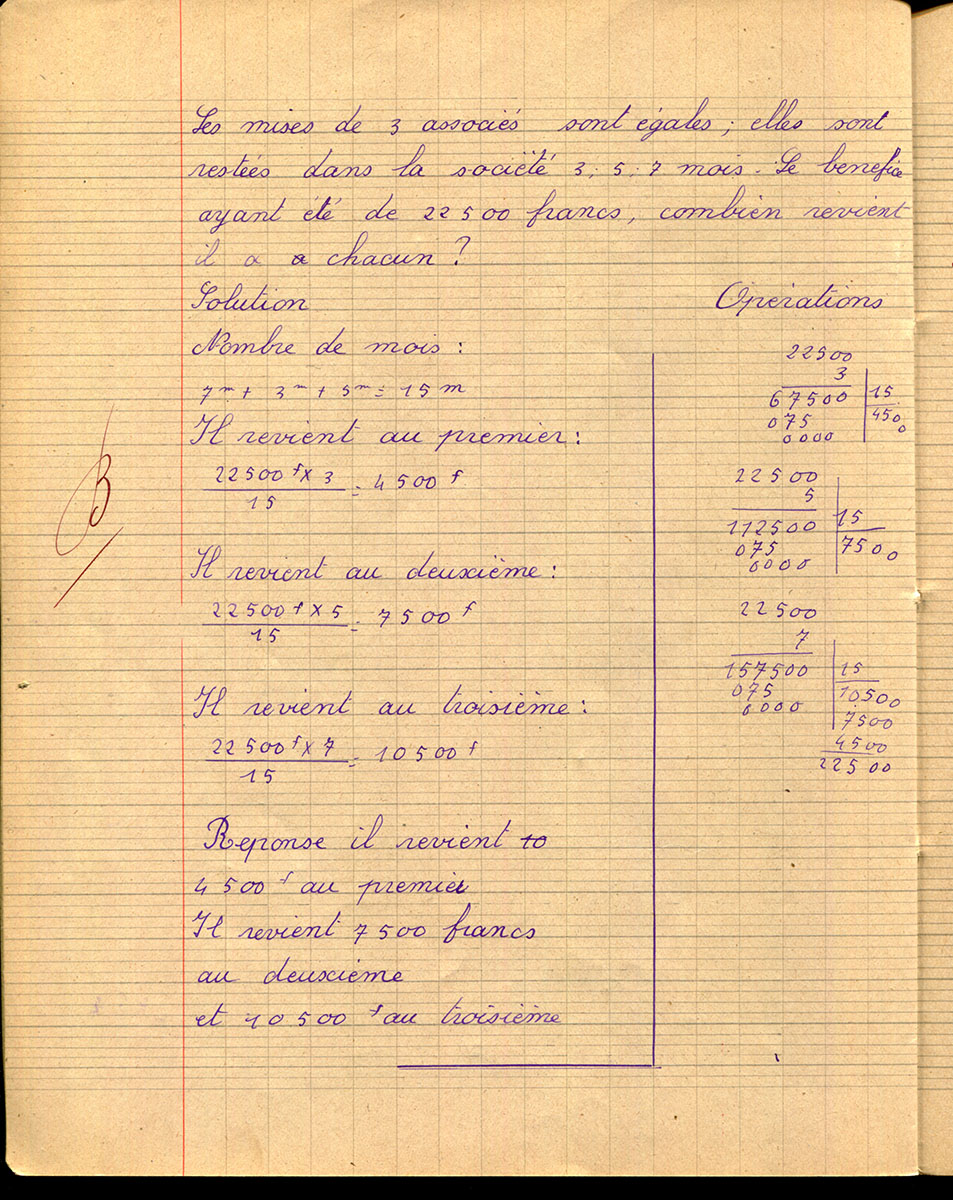 Les mises de 3 associés sont égales ; elles sont
restées dans la société 3, 5, 7 mois. Le benefice
ayant été de 22 500 francs, combien revient
il a a chacun ?
Solution
Nombre de mois :
7 m + 3 m + 5 m = 15 m
Il revient au premier :
22 500 f x 3
15
= 4 500 f
Il revient au deuxième :
22 500 f x 5
15
= 7 500 f
Il revient au troisième :
22 500 f x 7
15
= 10 500 f
Reponse il revient 10
4 500 f au premier
Il revient 7 500 francs
au deuxième
et 10 500 f au troisième
Opérations
22500
3
67500 15
075 4500
0000
22500
5
112500 15
075 7500
0000
22500
7
157500 15
075 10500
0000 7500
4500
22500
B